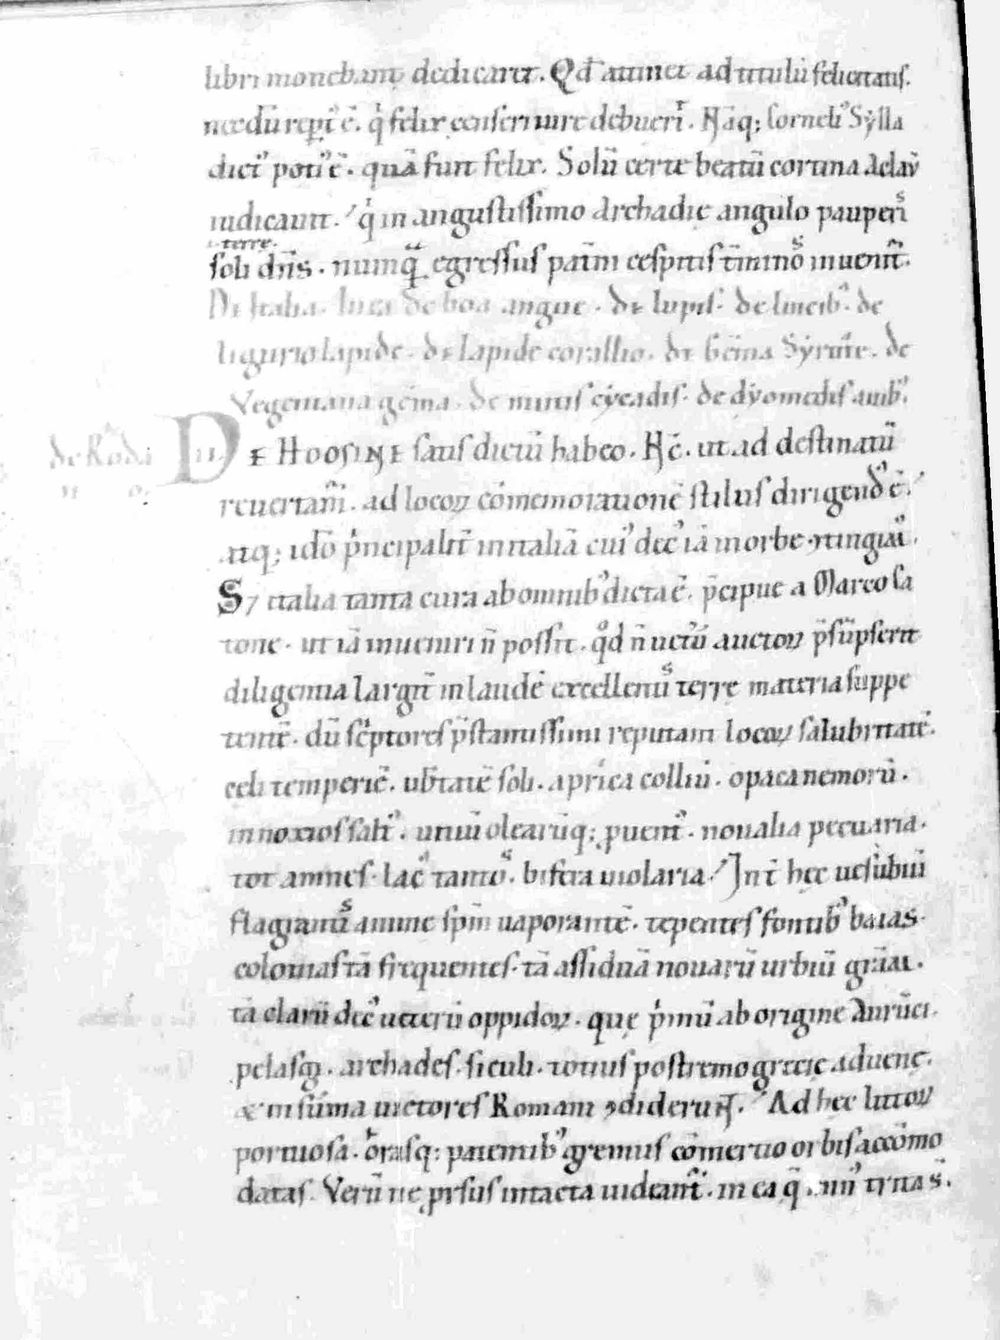 libri monebant dedicaret. Qd̄ attinet ad titulū felicitatis.
necdū rep̱t᷒ ē. qͥ felix censeri iure debueriͭ. Nāq; Corneli᷒ Sẏlla
dict᷒ poti᷒ ē. quā fuit felix. Solū certe beatū cortina Aglaū
iudicauit. qͥ in angustissimo Archadie angulo pauperiˢ
.i. terre.
soli dn̄s. numqͣ̄ egressus pat̄ni cespitis t̄minoˢ inuenit̄.
De Italia. Inea de boa angue. de lupis. de lincib᷒. de
ligurio lapide. de lapide corallio. de gēma Sẏrtite. de
Vegentana gēma. de mutis cẏcadis. de dẏomedis auib᷒.
DE HOOSINE satis dictū habeo. Nc̄. ut ad destinatū
reuertam̄. ad locoꝝ cōmemorationē stilus dirigend᷒ ē.
atq; idō pͥncipalit̄ in italiā cui᷒ dec᷒ iā in orbe ꝯtingim᷒.
S⁊ italia tanta cura ab omnib᷒ dicta ē. p̄cipue a Marco Ca
tone. ut iā inueniri n̄ possit. qͦd n̄ uetū auctoꝝ p̄sūpserit
diligentia largit̄ in laudē excellentiˢ terre materia suppe
tente. dū scͥptores p̄stantissimi reputant locoꝝ salubritatē.
celi temperiē. ub̄tatē soli. aprica colliū. opaca nemorū.
innoxios salt᷒. uitiū olearūq; puent᷒. noualia pecuaria.
tot amnes. lac᷒ tantoˢ. bifera uiolaria. Int̄ hec uesubiū
flagrantiˢ anime spm̄ uaporantē. tepentes fontib᷒ baias.
colonias tā frequentes. tā assiduā nouarū urbiū grām.
tā clarū dec᷒ ueterū oppidoꝝ. quę pͥmū aborigine Aurūci.
pelasgi. archades. siculi. totius postremo grecie aduenę.
& in sūma uictores Romani ꝯdiderunt. Ad hec littoꝝ
portuosa. orasq; patentib᷒ gremiis cōmertio orbis accōmo
datas. Verū ne prsus intacta uideant᷒. in ea q̄.